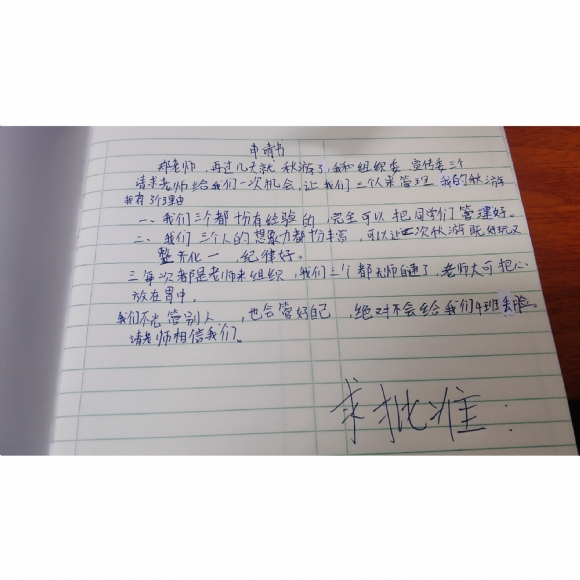 申请书
郑老师，再过几天就秋游了，我和组织委、宣传委三个
请求老师给我们一次机会，让我们三个人来管理，我的秋游
我有3个理由
一、我们三个都十分有经验的，完全可以把同学们管理好。
二、我们三个人的想象力都十分丰富，可以让二次秋游既好玩又
整齐化一，纪律好。
三每次都是老师来组织，我们三个都无师自通了，老师大可把心
放在胃中，
我们不光管别人，也会管好自己，绝对不会给我们4班丢脸。
请老师相信我们。
求批准：